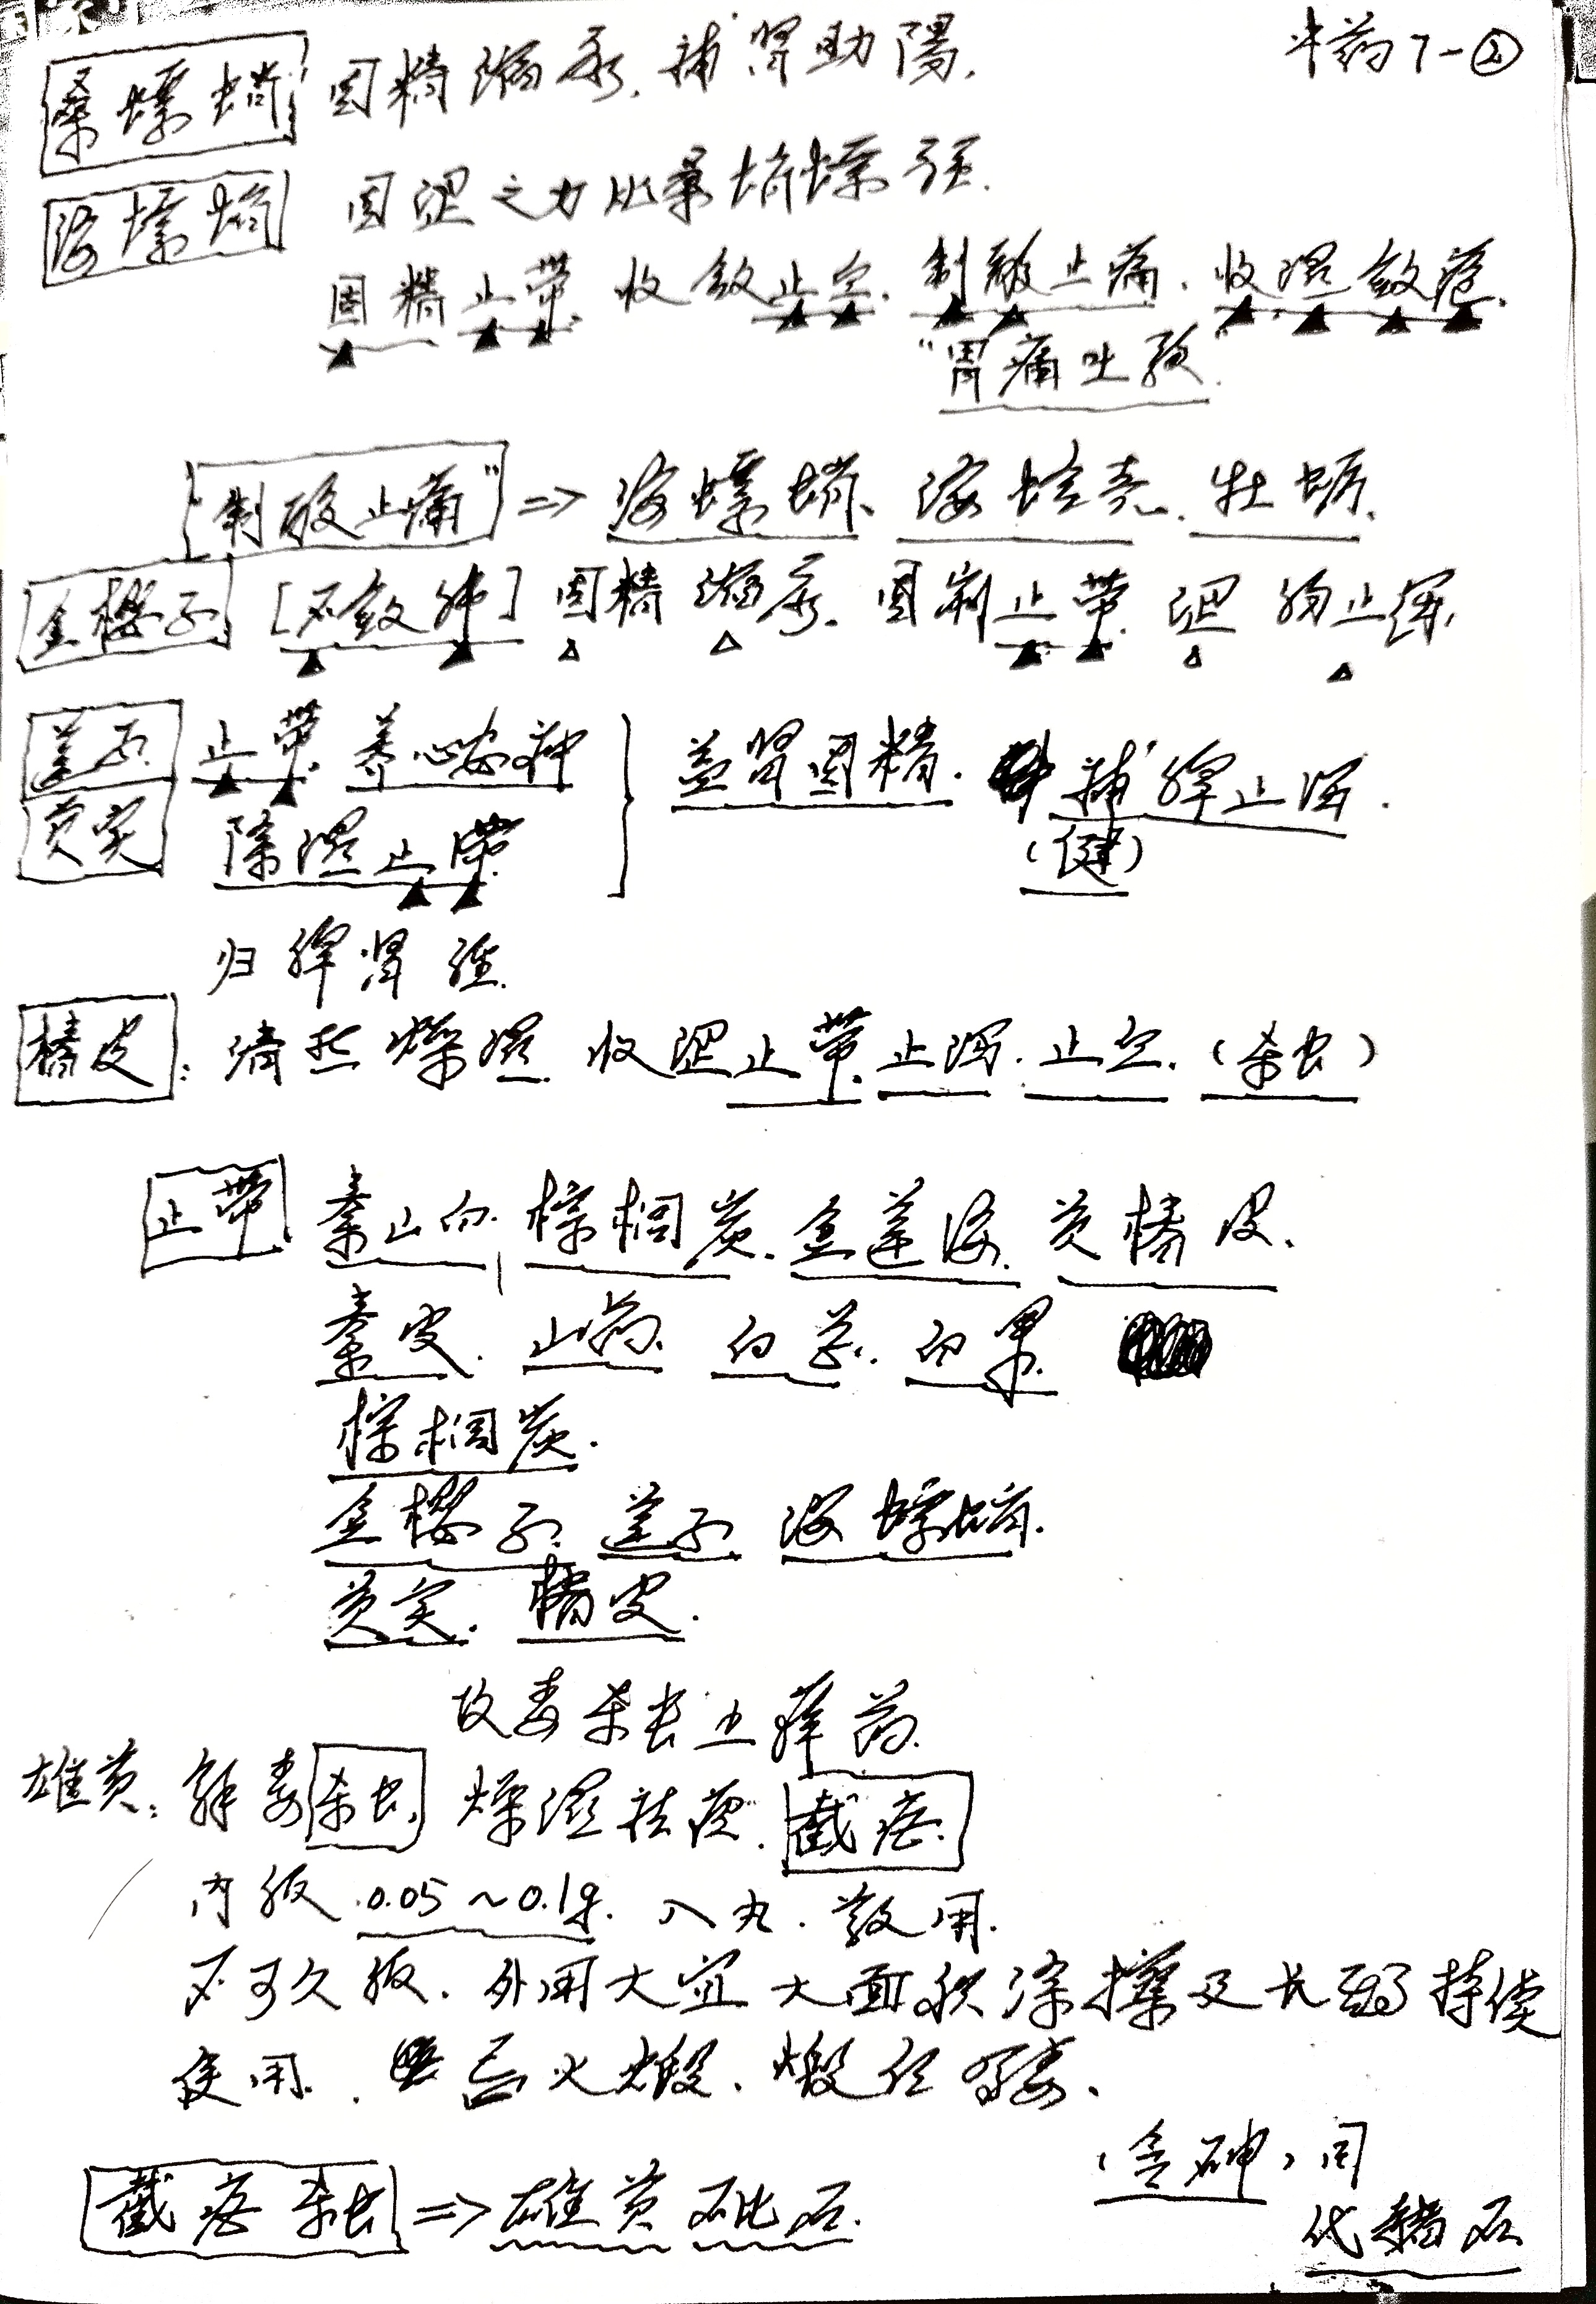 中药7-②
桑螵蛸 固精缩尿.補肾助陽.
海螵蛸 固涩之力比桑蛸螵强.
固精止带.收敛止血.制酸止痛.收湿敛疮.
"胃痛吐酸"
"制酸止痛"⇒海螵蛸、海蛤壳.牡蛎.
金樱子 [不敛肺] 固精缩尿.固崩止带.涩肠止泻.
莲子 止带.养心安神
芡实 除湿止带
益肾固精.補脾止泻.
(健)
归脾肾经.
椿皮:清热燥湿.收涩止带.止泻.止血.(杀虫)
止带 秦山白.棕榈炭.金莲海.芡椿皮.
秦皮.山药.白芷.白果
棕榈炭.
金樱子.莲子.海螵蛸.
芡实.椿皮.
攻毒杀虫止痒药.
雄黄:解毒杀虫,燥湿祛痰.截疟.
内服.0.05~0.1g.入丸.散用.
不可久服.外用大宜大面积涂擦及长期持续
使用.忌火煅.煅后剧毒.
(含砷)同
代赭石
截疟杀虫⇒雄黄.砒石.